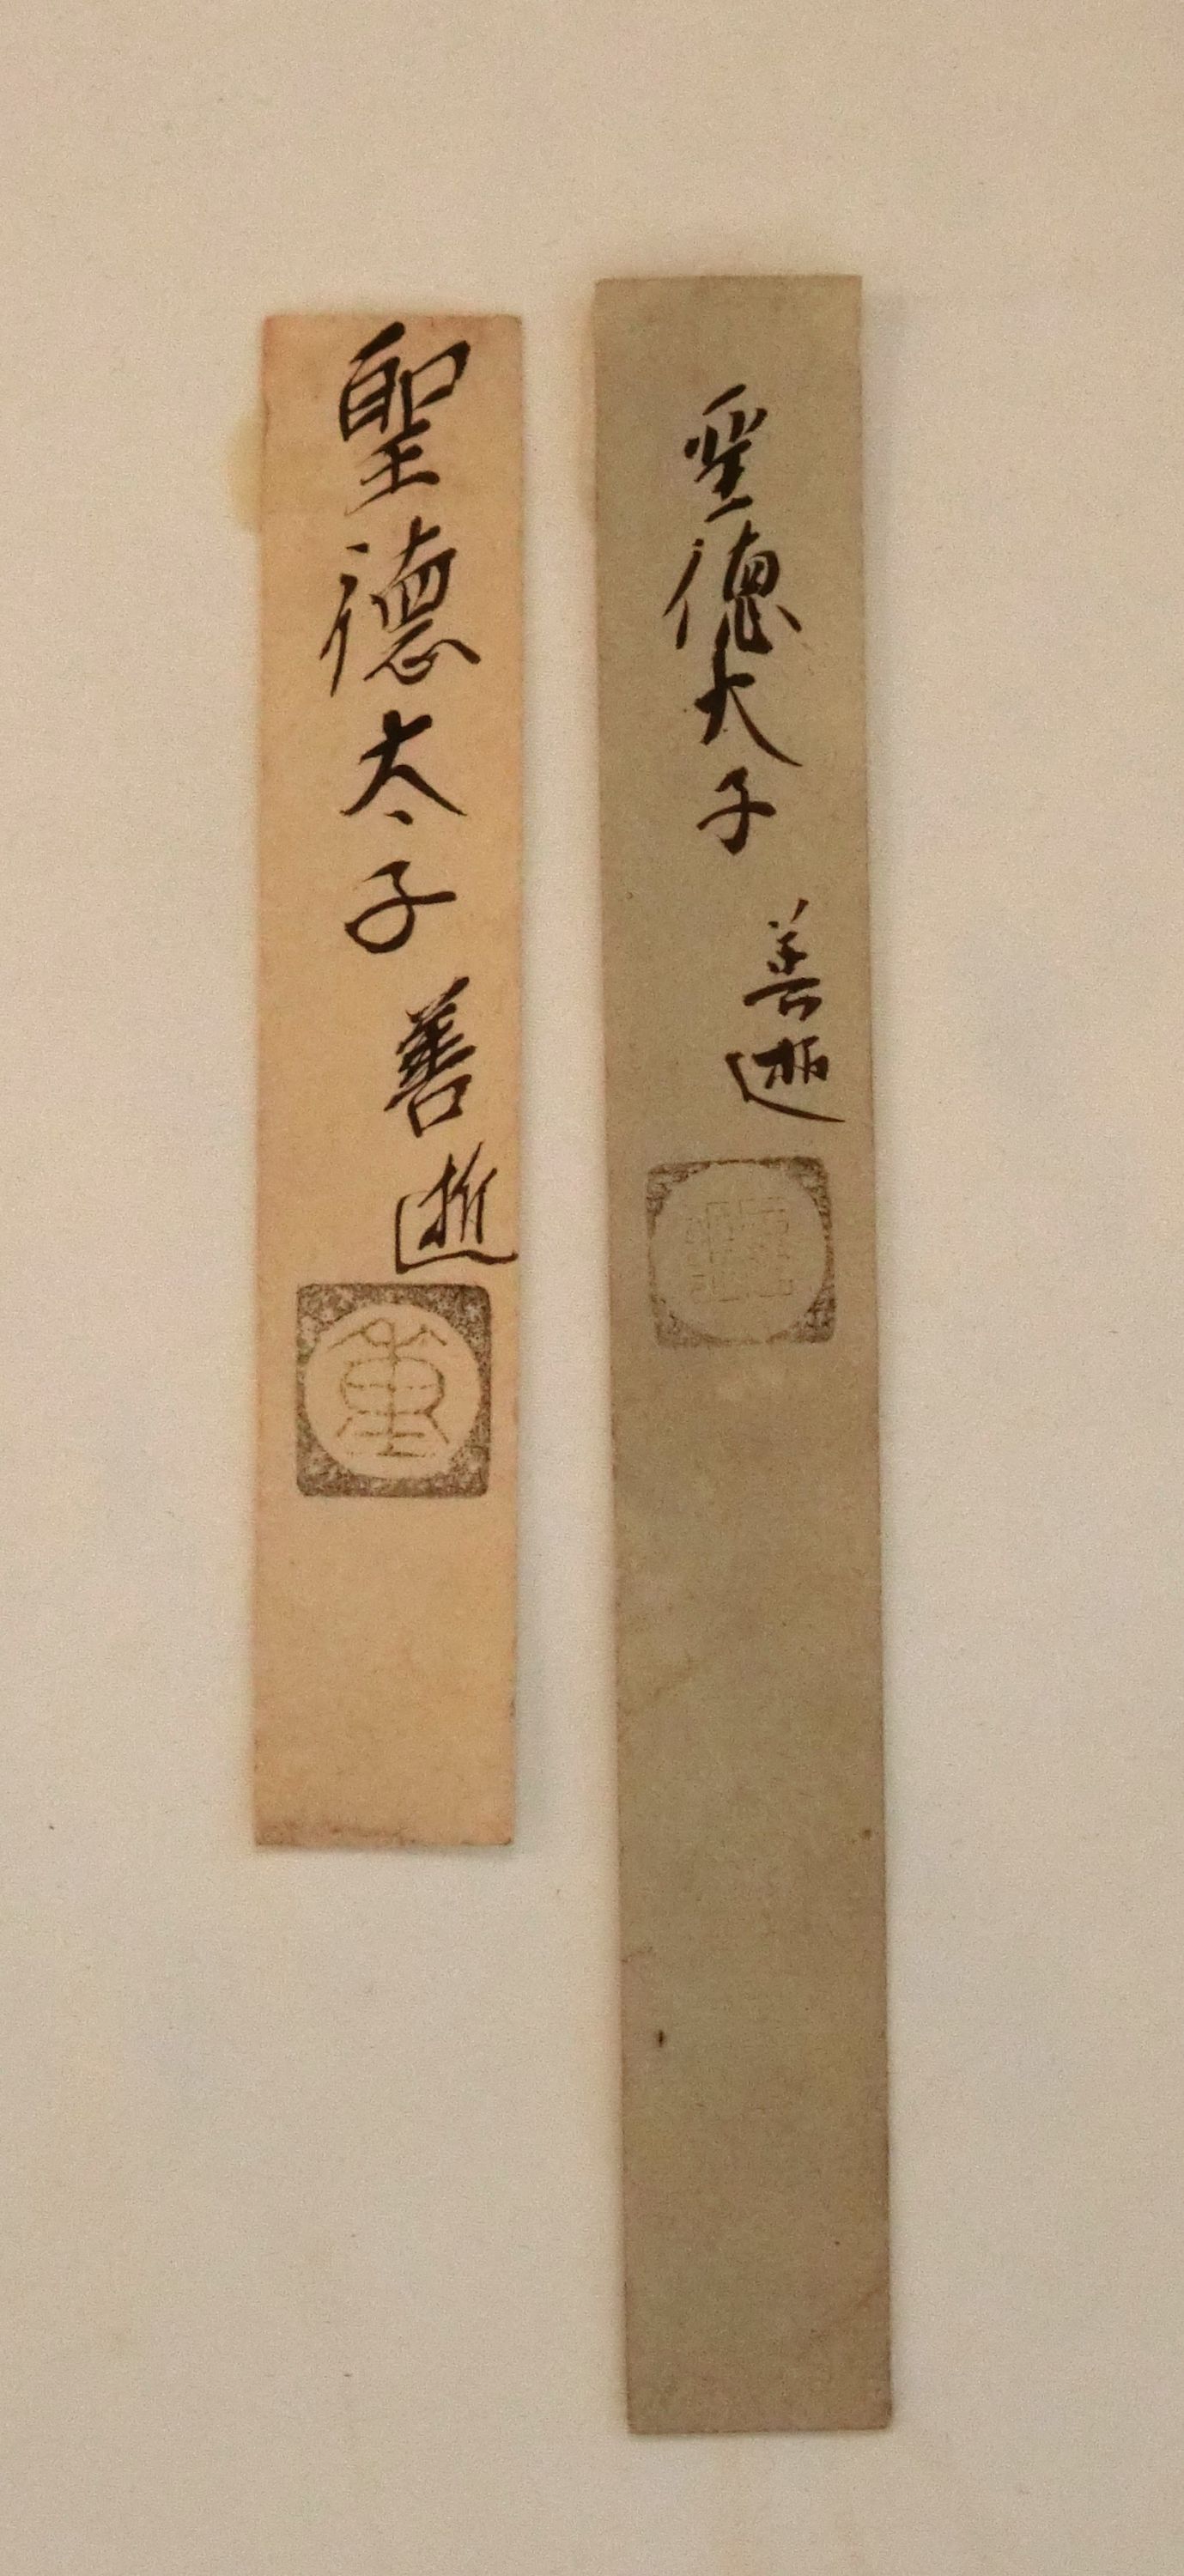 聖徳太子
善逝
聖徳太子
善逝